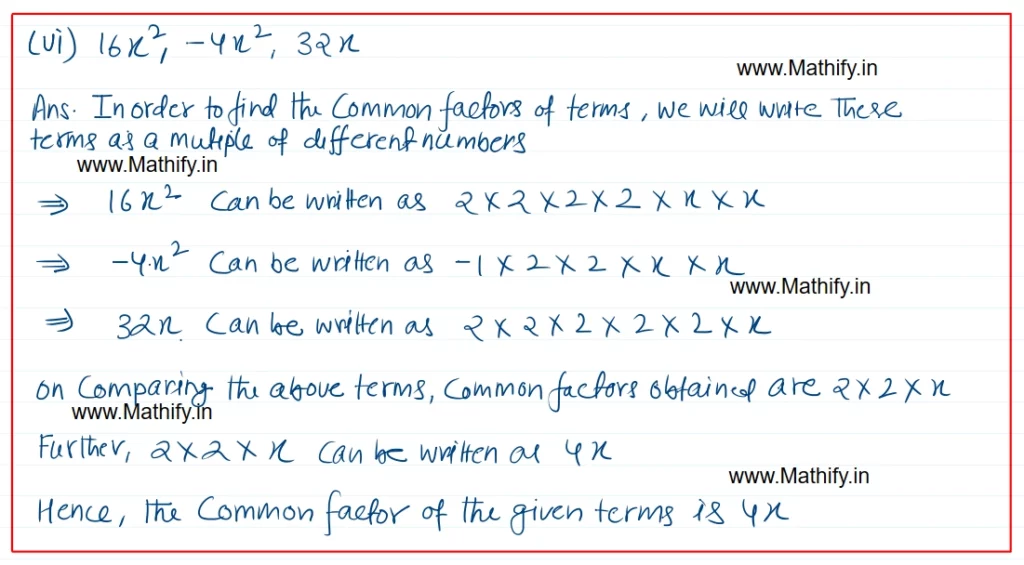 (vi) 16x², -4x², 32x
www.Mathify.in
Ans. In order to find the Common factors of terms, we will write these
terms as a multiple of different numbers
www.Mathify.in
⇒ 16x² Can be written as 2×2×2×2×x×x
⇒ -4x² Can be written as -1×2×2×x×x
www.Mathify.in
⇒ 32x Can be written as 2×2×2×2×2×x
on Comparing the above terms, Common factors obtained are 2×2×x
www.Mathify.in
Further, 2×2×x Can be written as 4x
www.Mathify.in
Hence, the Common factor of the given terms is 4x